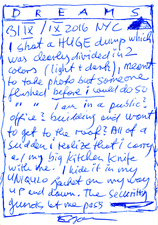 DREAMS
31 / IX / 2016 NYC
I shat a HUGE dump which
was clearly divided in 2
colors (light & dark), meant
to take photo but someone
flushed before i would do so
" " I am in a public?
office? building and want
to get to the roof? All of a
sudden i realize that i carry
a/ my big kitchen knife
with me. I hide it in my
jacket on my way
up and down. The security
guards let me pass